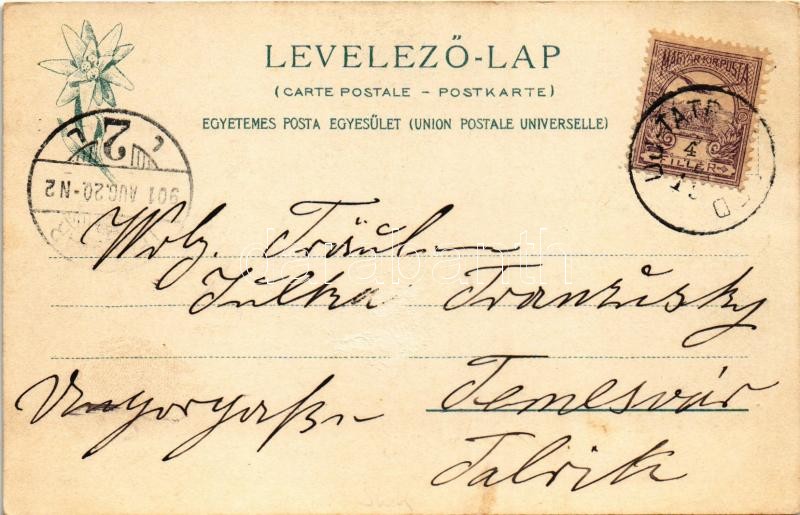 LEVELEZŐ-LAP
(CARTE POSTALE – POSTKARTE)
EGYETEMES POSTA EGYESÜLET (UNION POSTALE UNIVERSELLE)
MAGYAR KIR. POSTA
4
FILLÉR
2
901 AUG. 20-N2
Wolg. Fräulein
Julka Franzušky
Temesvár
Fabrik
darabanth